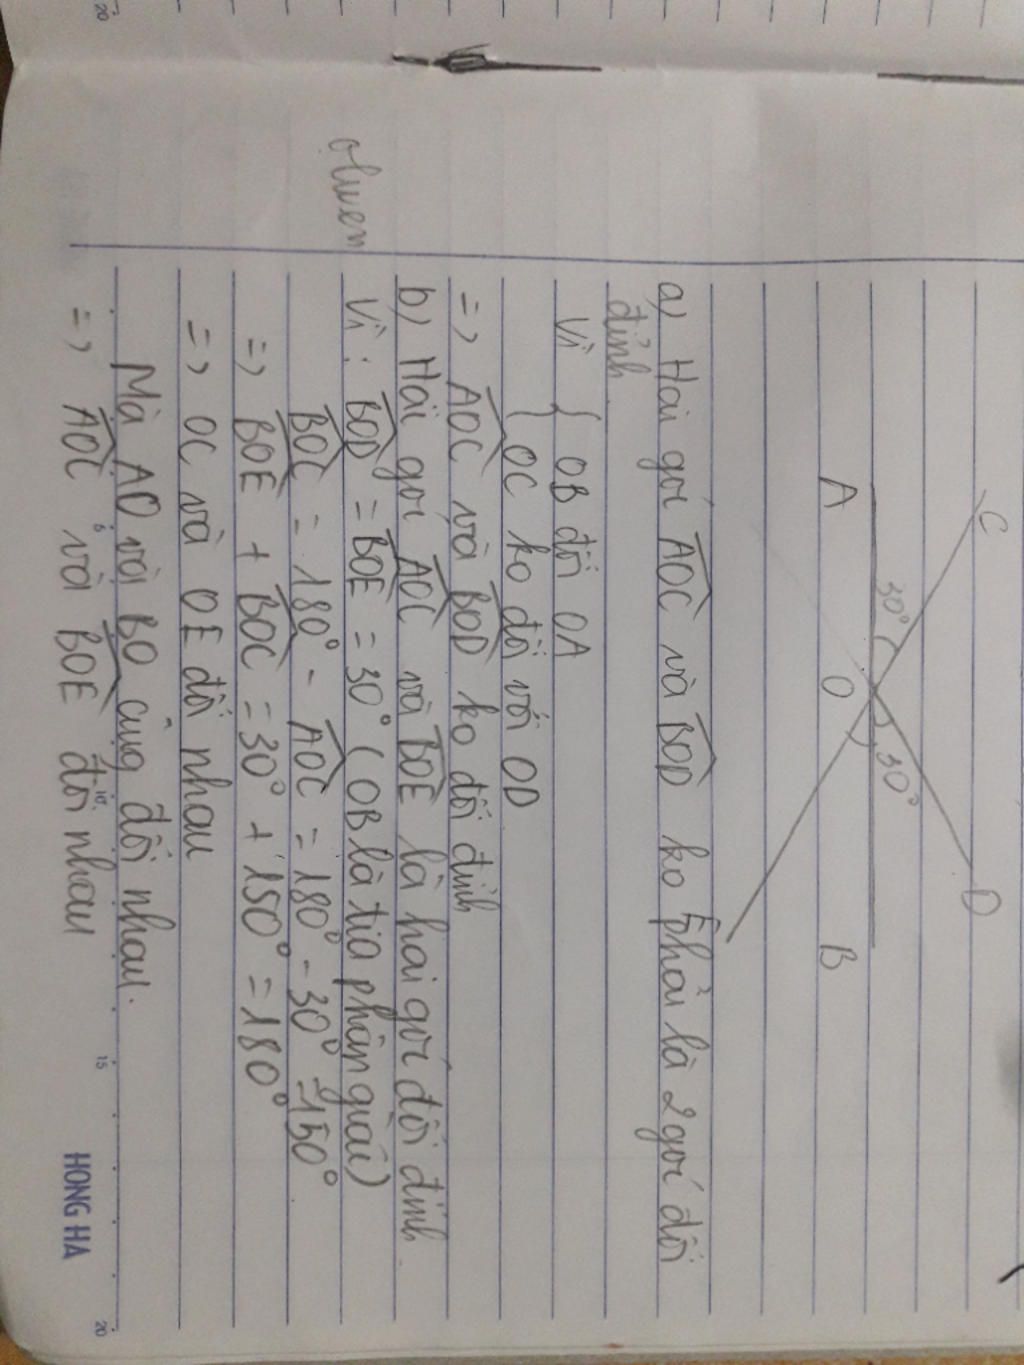 C
D
30°
30°
A
O
B
a) Hai gói AOC và BOD ko phải là 2 gói đối
đỉnh.
Vì { OB đối OA
{ OC ko đối với OD
=> AOC và BOD ko đối đỉnh
b) Hai gói AOC và BOE là hai gói đối đỉnh.
Vì: BOD = BOE = 30° (OB là tia phân giác)
BOC = 180° - AOC = 180° - 30° = 150°
=> BOE + BOC = 30° + 150° = 180°
=> OC và OE đối nhau
Mà AO và BO cũng đối nhau.
=> AOC và BOE đối nhau
oluen
HONG HA
20
5
10
15
20